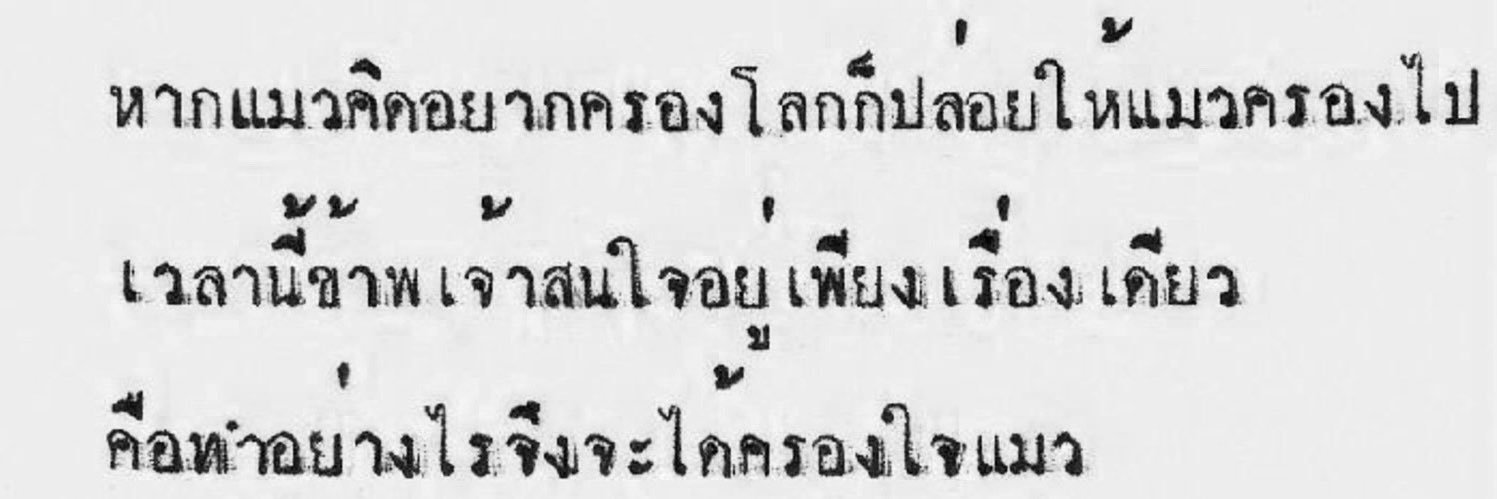 หากแมวคิดอยากครองโลกก็ปล่อยให้แมวครองไป
เวลานี้ข้าพเจ้าสนใจอยู่เพียงเรื่องเดียว
คือทำอย่างไรจึงจะได้ครองใจแมว